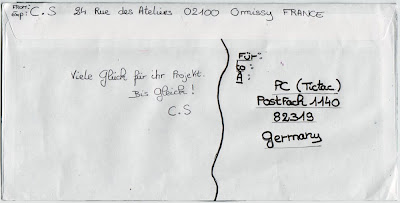 From:
Exp: C.S 24 Rue des Ateliers 02100 Omissy FRANCE
Viele Glück für ihr Projekt.
Bis Gleich!
C.S
Für:
PC (Tictac)
Postfach 1140
82319
Germany